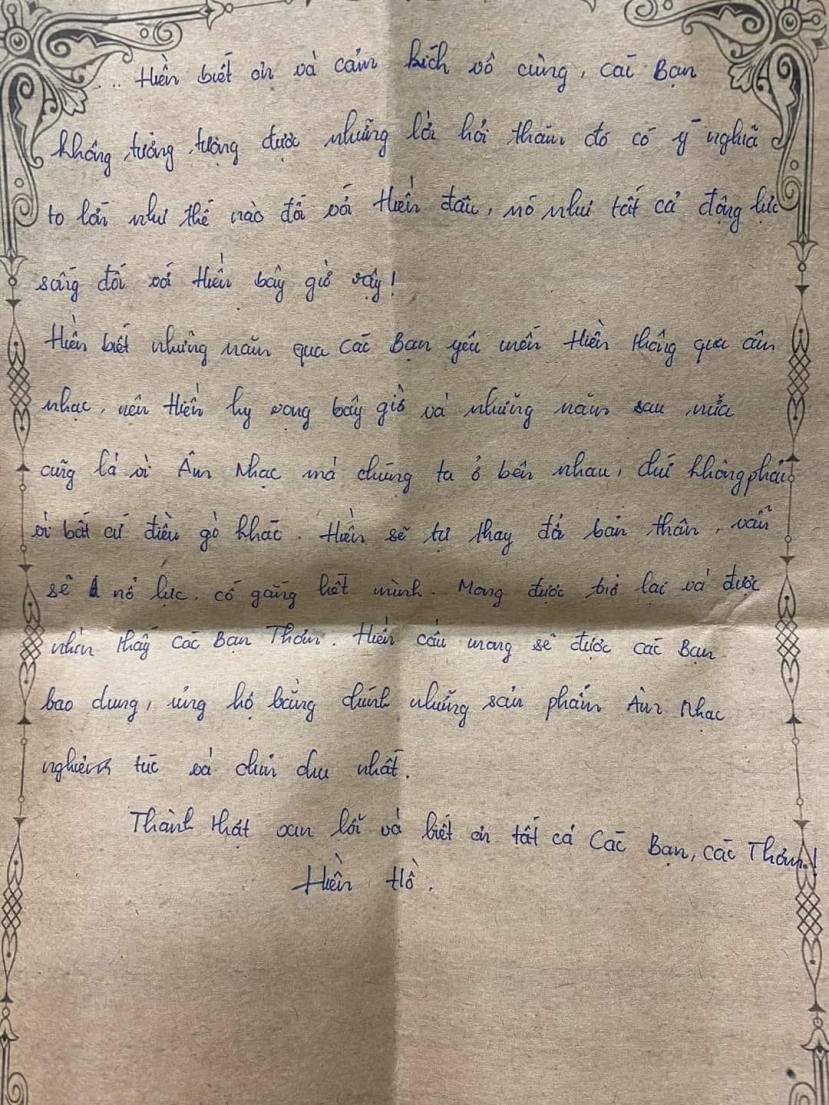 ... Hiền biết ơn và cảm kích vô cùng, các Bạn
không tưởng tượng được những lời hỏi thăm đó có ý nghĩa
to lớn như thế nào đối với Hiền đâu, nó như tất cả động lực
sống đối với Hiền bây giờ vậy!
Hiền biết những năm qua Các Bạn yêu mến Hiền thông qua âm
nhạc, nên Hiền hy vọng bây giờ và những năm sau nữa
cũng là vì Âm Nhạc mà chúng ta ở bên nhau, chứ không phải
vì bất cứ điều gì khác. Hiền sẽ tự thay đổi bản thân, vẫn
sẽ nỗ lực, cố gắng hết mình. Mong được trở lại và được
nhìn thấy các Bạn Thơm. Hiền cầu mong sẽ được các Bạn
bao dung, ủng hộ bằng chính những sản phẩm Âm Nhạc
nghiêm túc và chỉn chu nhất.
Thành thật xin lỗi và biết ơn tất cả Các Bạn, các Thơm!
Hiền Hồ.